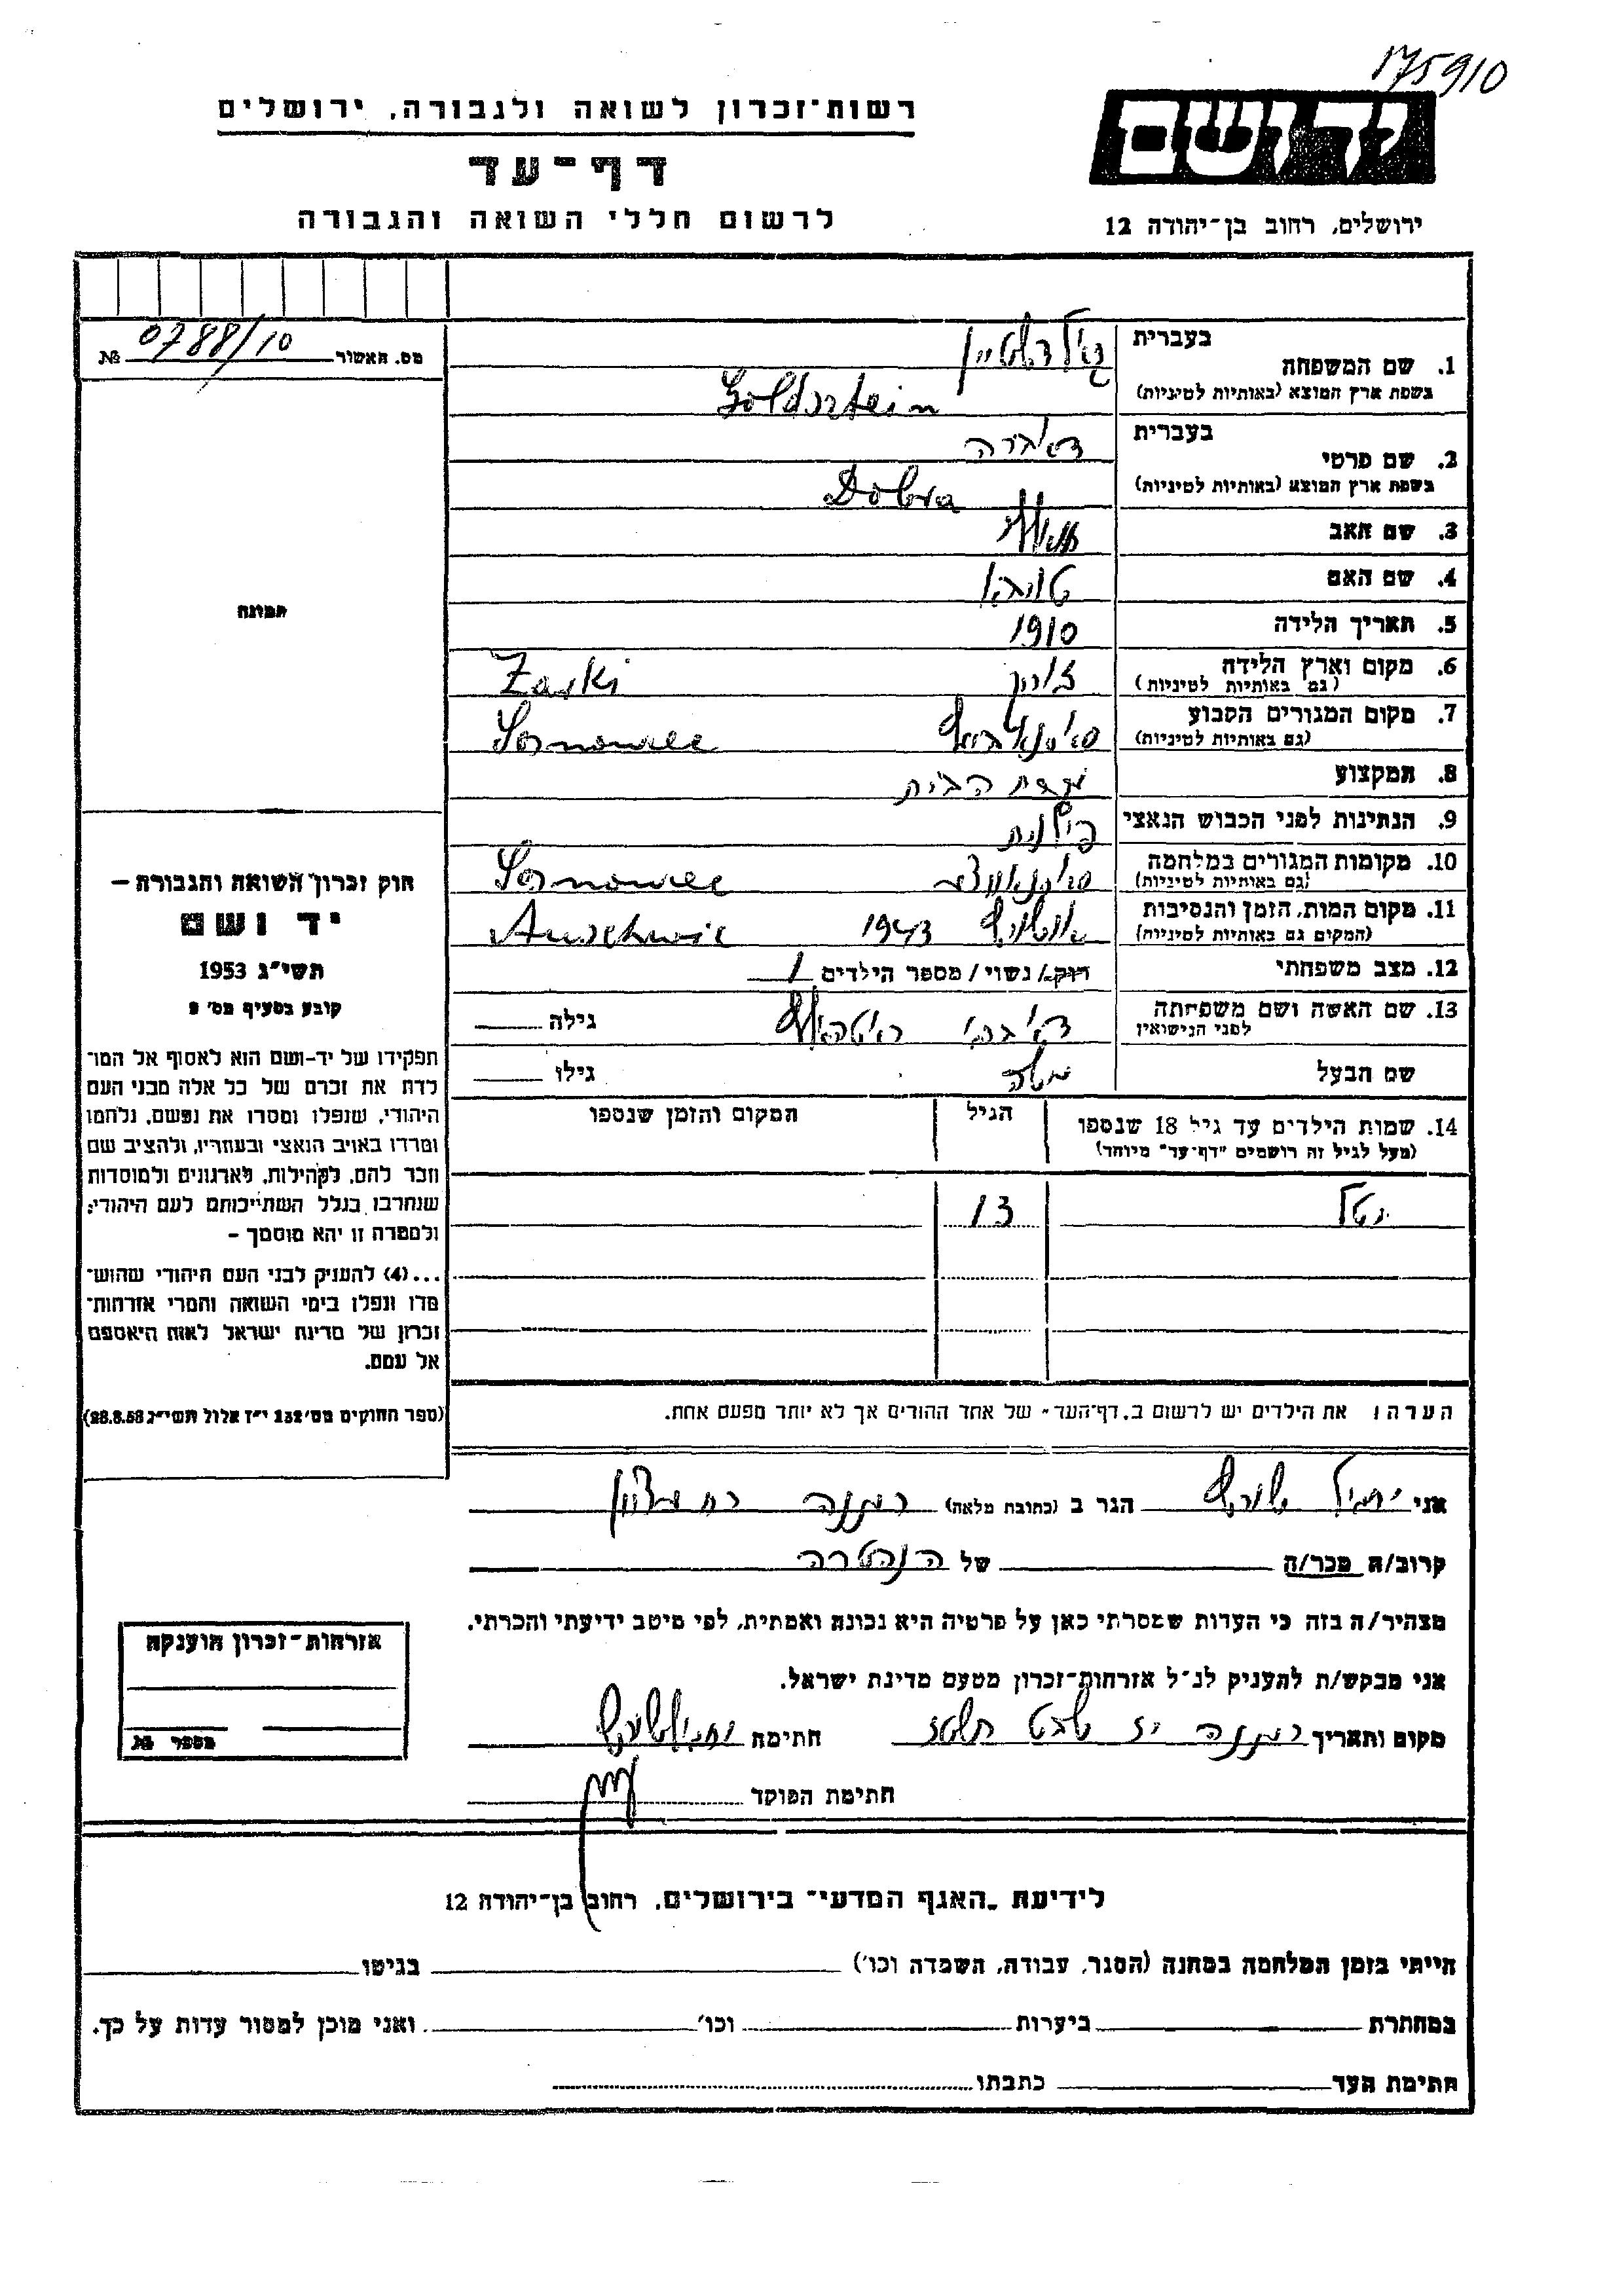 175910
רשות־זכרון לשואה ולגבורה, ירושלים
יד ושם
דף־עד
לרשום חללי השואה והגבורה
ירושלים, רחוב בן־יהודה 12
מס. האשור № 0788/10
בעברית גולדשטיין
1. שם המשפחה
בשפת ארץ המוצא (באותיות לטיניות) Goldsztein
בעברית דאברה
2. שם פרטי
בשפת ארץ המוצא (באותיות לטיניות) Dobra
3. שם האב
4. שם האם טובה
5. תאריך הלידה 1910
6. מקום וארץ הלידה Zarki
(גם באותיות לטיניות)
7. מקום המגורים הקבוע Sosnowiec
(גם באותיות לטיניות)
8. המקצוע עקרת הבית
9. הנתינות לפני הכבוש הנאצי פולנית
10. מקומות המגורים במלחמה Sosnowiec
(גם באותיות לטיניות)
11. מקום המות, הזמן והנסיבות 1943 Auschwic
(המקום גם באותיות לטיניות)
12. מצב משפחתי רוק/ נשוי / מספר הילדים 1
13. שם האשה ושם משפחתה גילה
לפני הנישואין
שם הבעל משה גילו
תמונה
14. שמות הילדים עד גיל 18 שנספו הגיל המקום והזמן שנספו
(מעל לגיל זה רושמים "דף־עד" מיוחד)
13
הערה: את הילדים יש לרשום ב„דף־העד" של אחד ההורים אך לא יותר מפעם אחת.
חוק זכרון השואה והגבורה –
יד ושם
תשי"ג 1953
קובע בסעיף מס' 2
תפקידו של יד-ושם הוא לאסוף אל המו־
לדת את זכרם של כל אלה מבני העם
היהודי, שנפלו ומסרו את נפשם, נלחמו
ומרדו באויב הנאצי ובעוזריו, ולהציב שם
וזכר להם, לקהילות, לארגונים ולמוסדות
שנחרבו בגלל השתייכותם לעם היהודי;
ולמטרה זו יהא מוסמך –
...(4) להעניק לבני העם היהודי שהוש־
מדו ונפלו בימי השואה והמרי אזרחות־
זכרון של מדינת ישראל לאות היאספם
אל עמם.
(ספר החוקים מס' 132 י"ז אלול תשי"ג 28.8.53)
אני הגר ב (כתובת מלאה) רעננה
קרוב/ה מכר/ה של הנפטרה
מצהיר/ה בזה כי העדות שמסרתי כאן על פרטיה היא נכונה ואמתית, לפי מיטב ידיעתי והכרתי.
אני מבקש/ת להעניק לנ"ל אזרחות־זכרון מטעם מדינת ישראל.
מקום ותאריך רעננה יז שבט תשטז חתימה
חתימת הפוקד
אזרחות־זכרון הוענקה
מספר №
לידיעת „האגף המדעי" בירושלים, רחוב בן־יהודה 12
הייתי בזמן המלחמה במחנה (הסגר, עבודה, השמדה וכו') בגיטו
במחתרת ביערות וכו' ואני מוכן למסור עדות על כך.
חתימת העד כתבתו